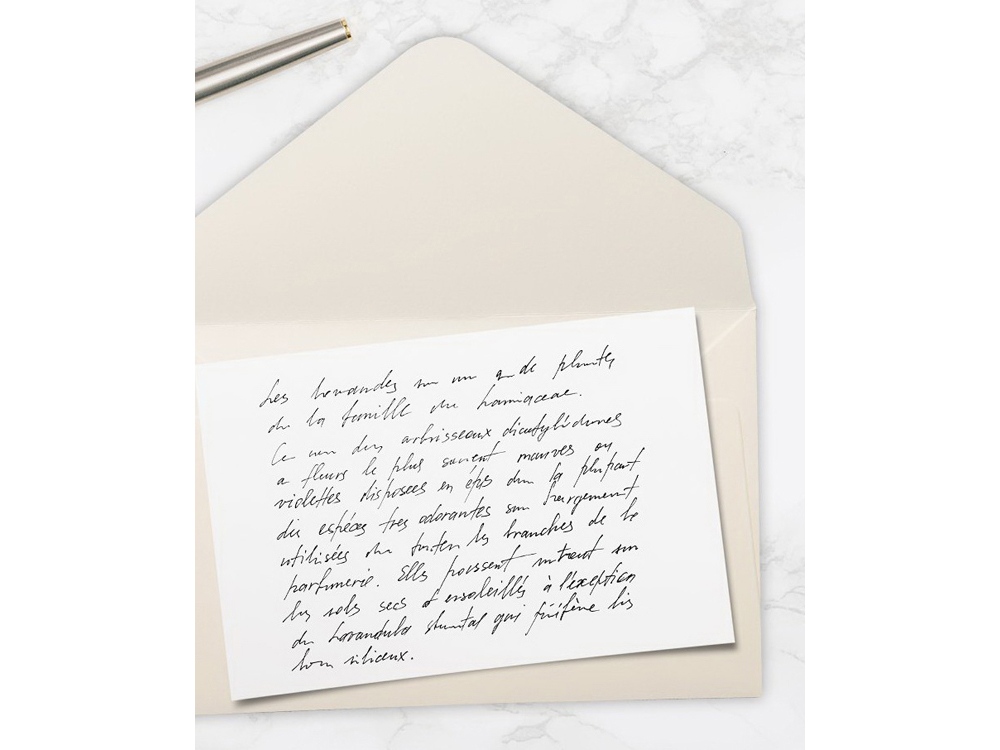 Les lavandes un de plantes
de la famille du Lamiaceae.
Ce arbrisseaux dicotylédones
a fleurs le plus souvent mauves ou
violettes disposees en épis la plupart
espéces tres odorantes largement
utilisées branches de la
parfumerie. Elles poussent surtout
les sols secs et ensoleillés à l'exception
du Lavandula qui préfére les
siliceux.